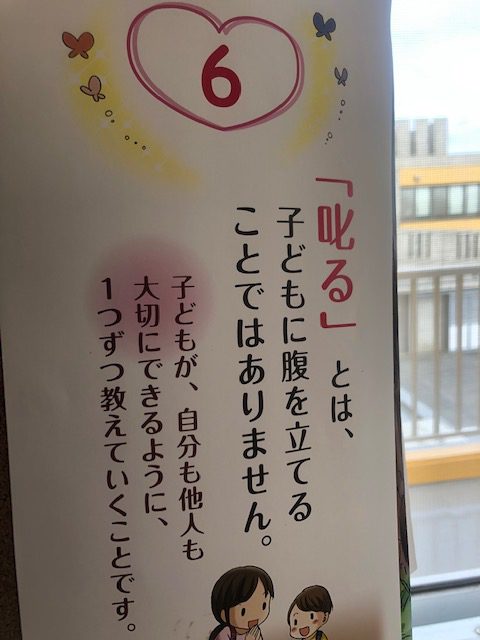 6
「叱る」とは、
子どもに腹を立てる
ことではありません。
子どもが、自分も他人も
大切にできるように、
1つずつ教えていくことです。